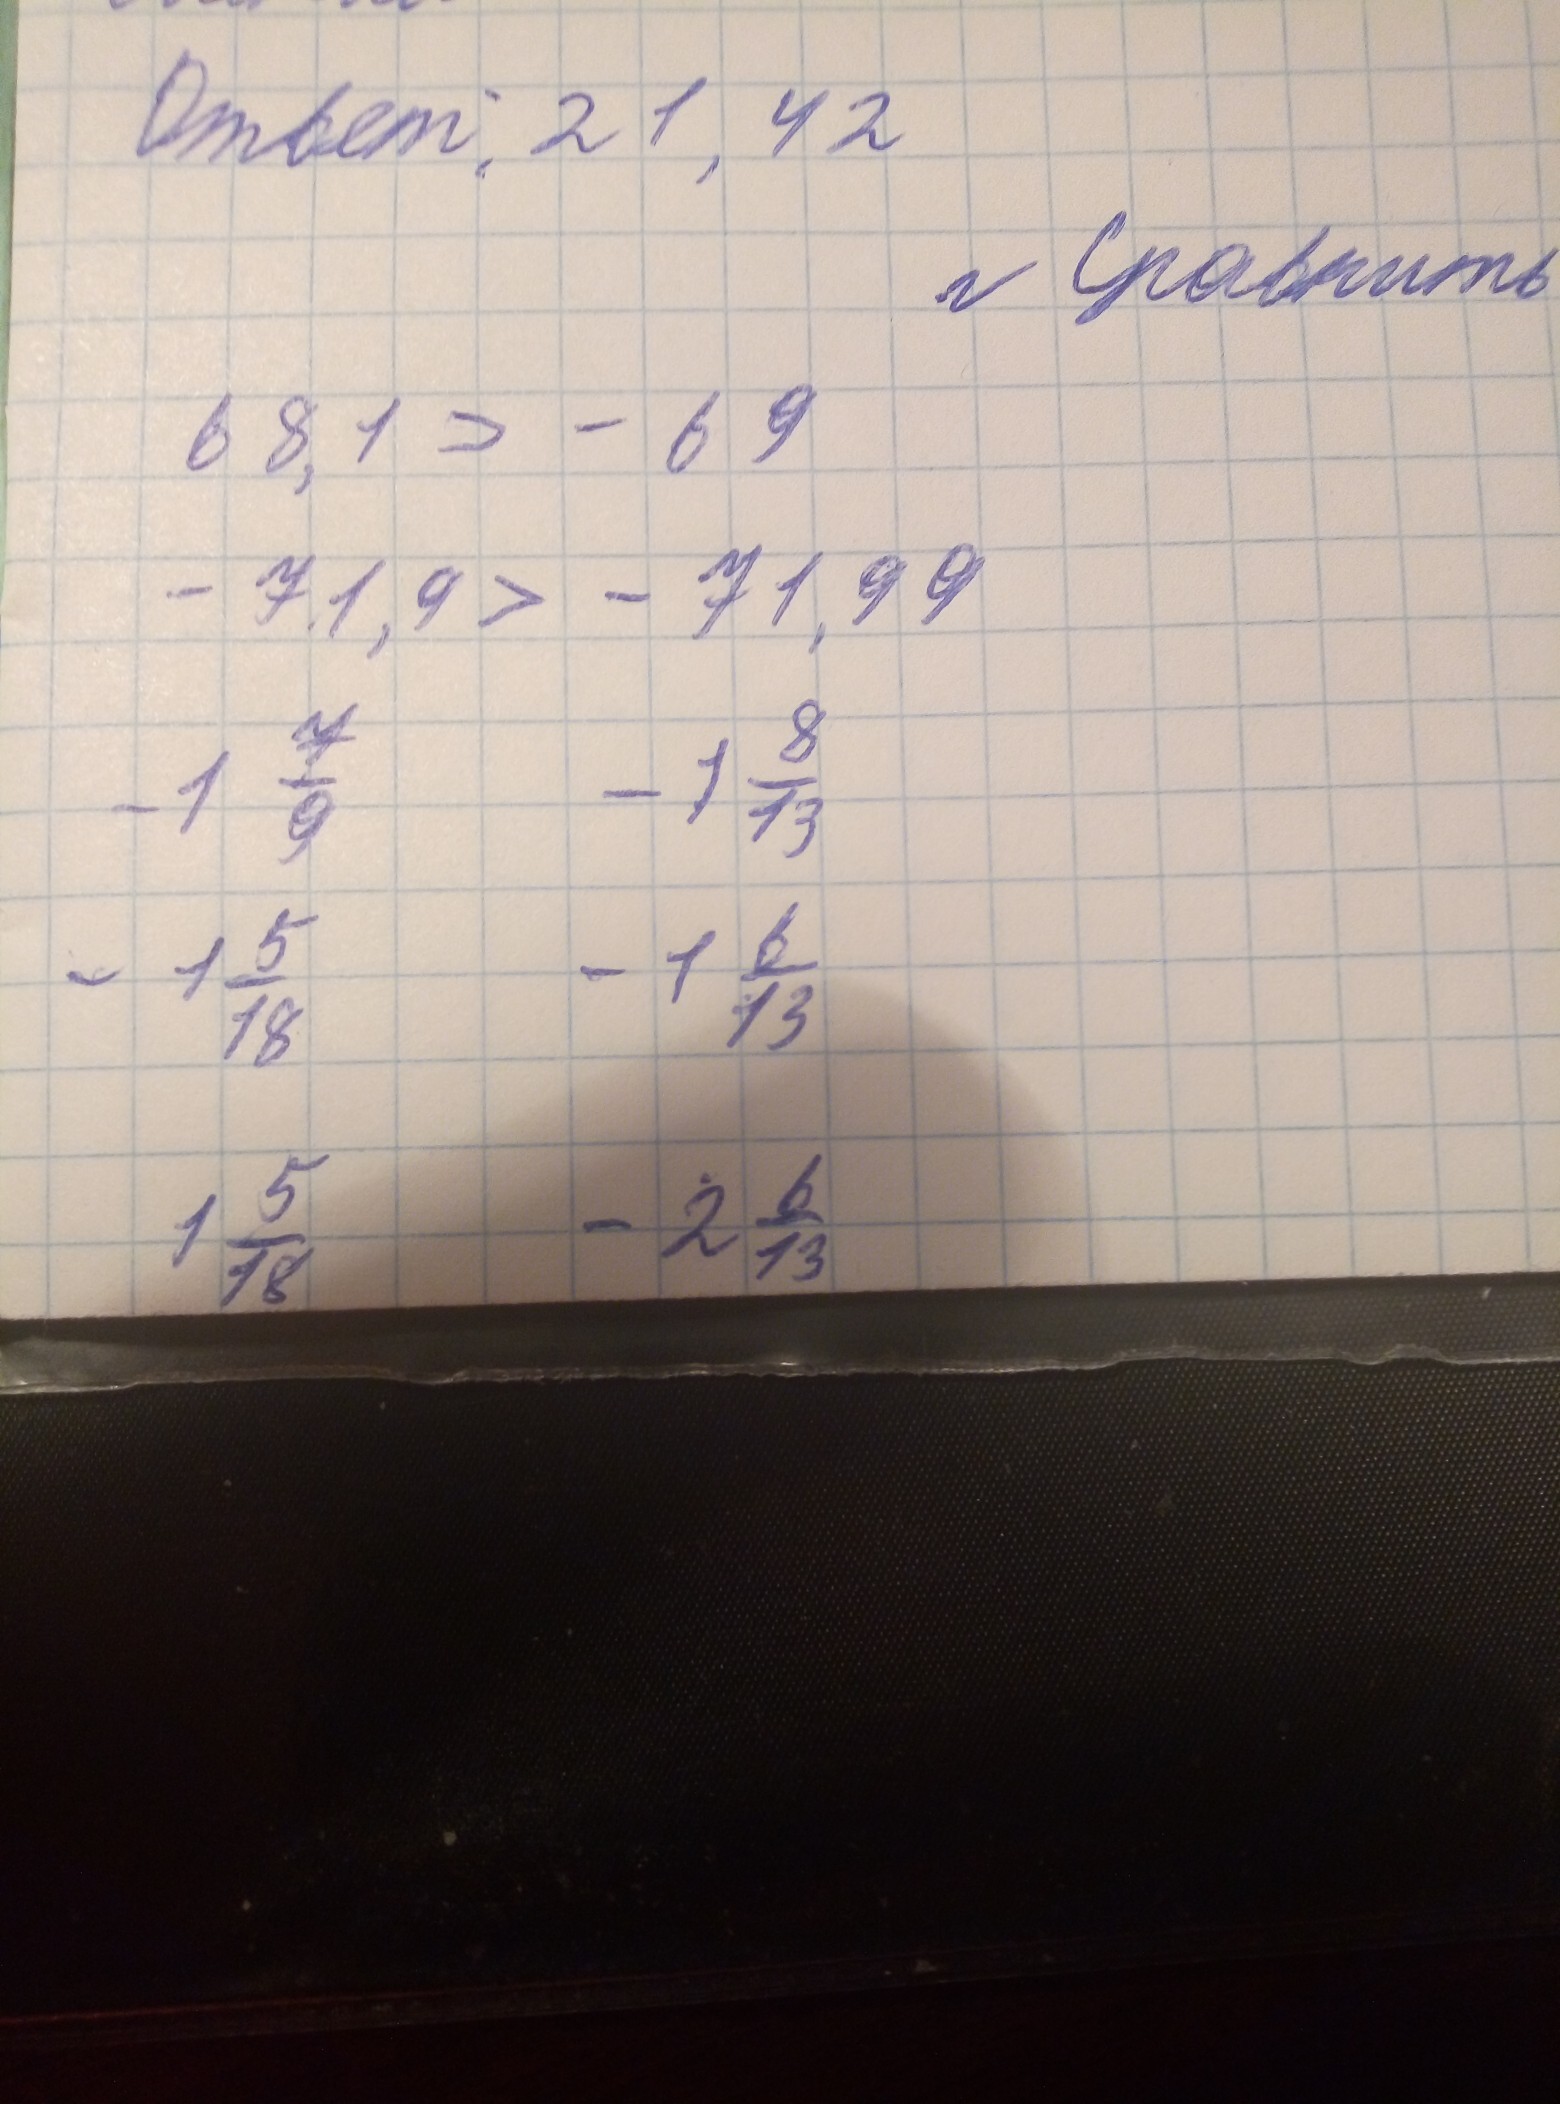 Ответ: 21,42
~ Сравнить
68,1 > - 69
- 71,9 > - 71,99
- 1 7/9 - 1 8/13
- 1 5/18 - 1 6/13
1 5/18 - 2 6/13